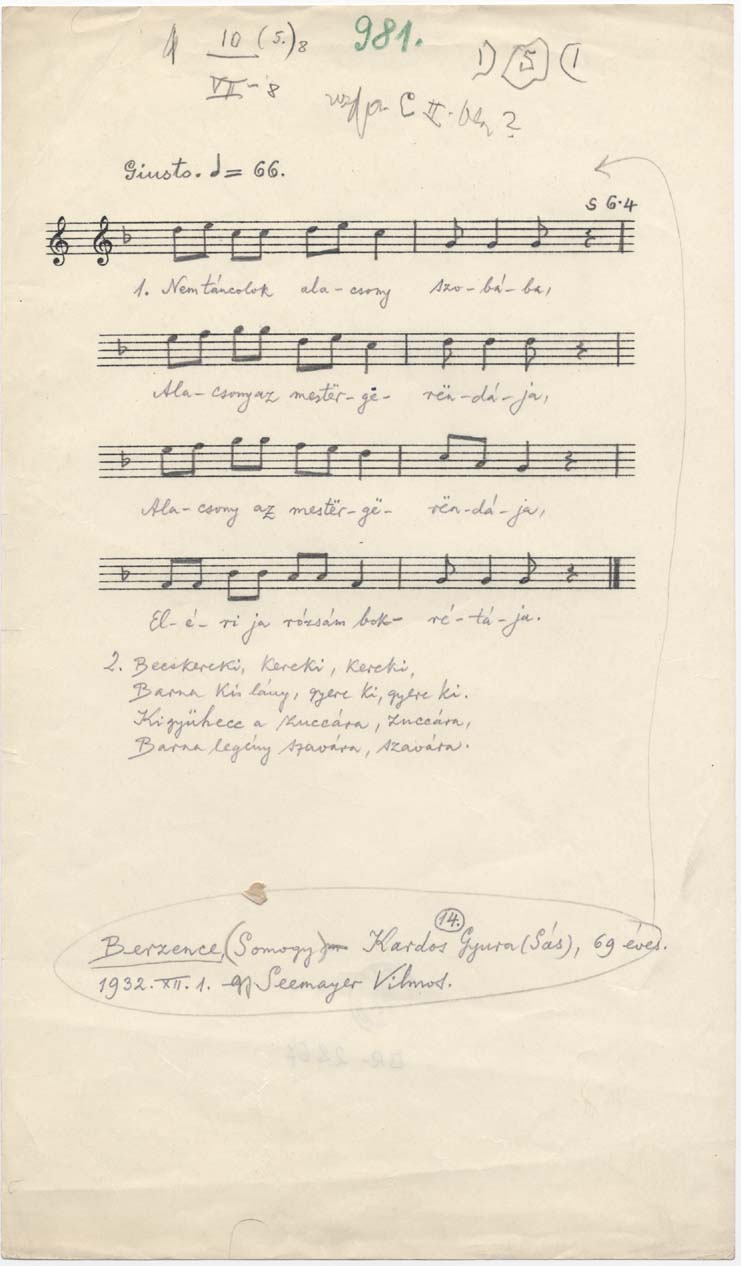 10 (5.)8 981. 1) 5 (1
VII-8
C II.
Giusto. = 66.
S 6.4
1. Nem táncolok ala-csony szo-bá-ba,
Ala-csony az mestër-gë- rën-dá-ja,
Ala-csony az mestër-gë- rën-dá-ja,
El-é-ri ja rózsám bok- ré-tá-ja.
2. Becskereki, kereki, kereki,
Barna kis lány, gyere ki, gyere ki.
Kigyühecc a zuccára, zuccára,
Barna legény szavára, szavára.
14.
Berzence, (Somogy) Kardos Gyura (Sás), 69 éves.
1932. XII. 1. Seemayer Vilmos.